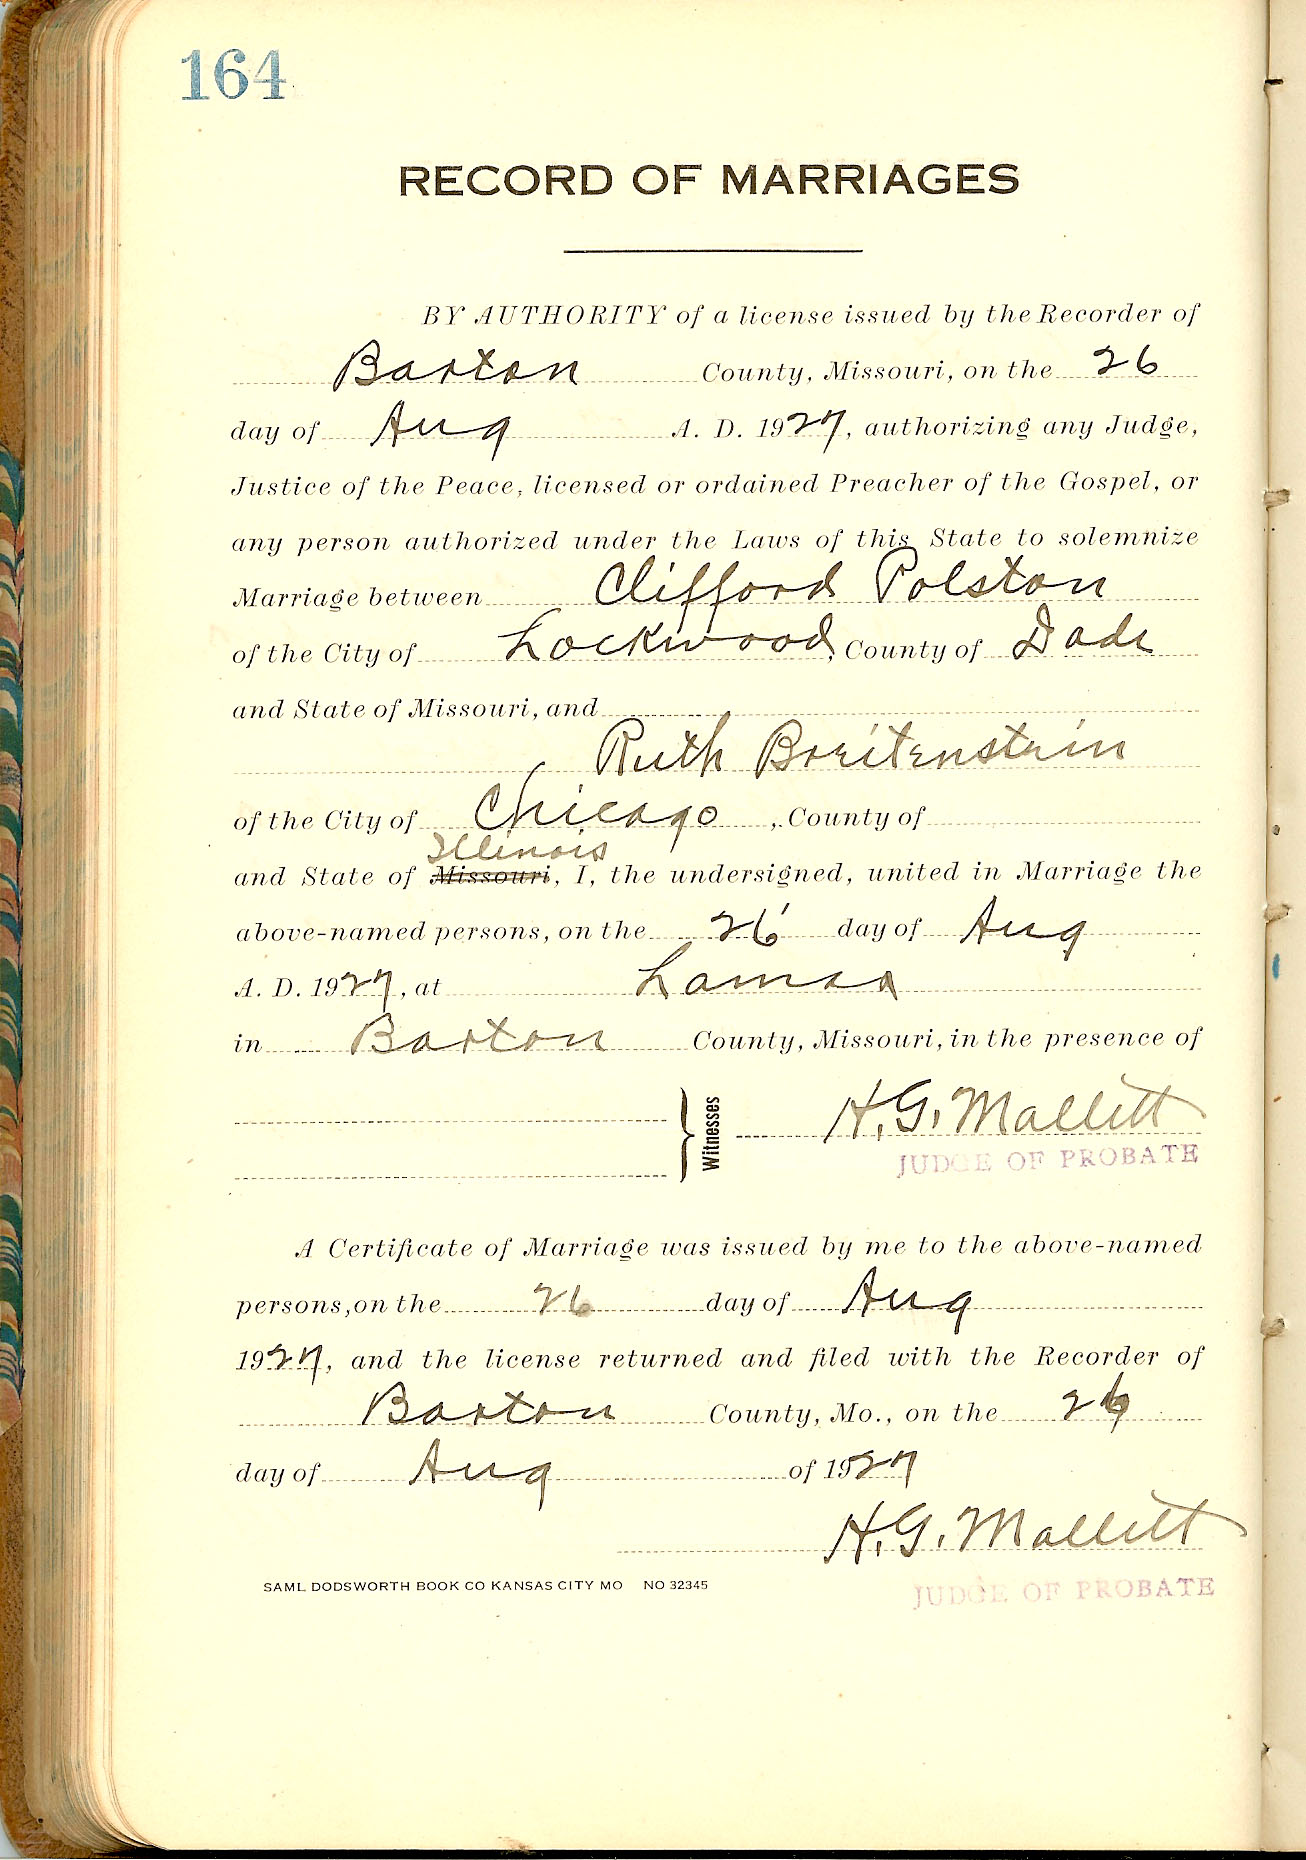 164
RECORD OF MARRIAGES
BY AUTHORITY of a license issued by the Recorder of
Barton County, Missouri, on the 26
day of Aug A. D. 1927, authorizing any Judge,
Justice of the Peace, licensed or ordained Preacher of the Gospel, or
any person authorized under the Laws of this State to solemnize
Marriage between Clifford Polston
of the City of Lockwood, County of Dade
and State of Missouri, and
Ruth Breitenstein
of the City of Chicago, County of
Illinois
and State of Missouri, I, the undersigned, united in Marriage the
above-named persons, on the 26 day of Aug
A. D. 1927, at Lamar
in Barton County, Missouri, in the presence of
Witnesses H. G. Mallett
JUDGE OF PROBATE
A Certificate of Marriage was issued by me to the above-named
persons, on the 26 day of Aug
1927, and the license returned and filed with the Recorder of
Barton County, Mo., on the 26
day of Aug of 1927
H. G. Mallett
SAML DODSWORTH BOOK CO KANSAS CITY MO NO 32345
JUDGE OF PROBATE